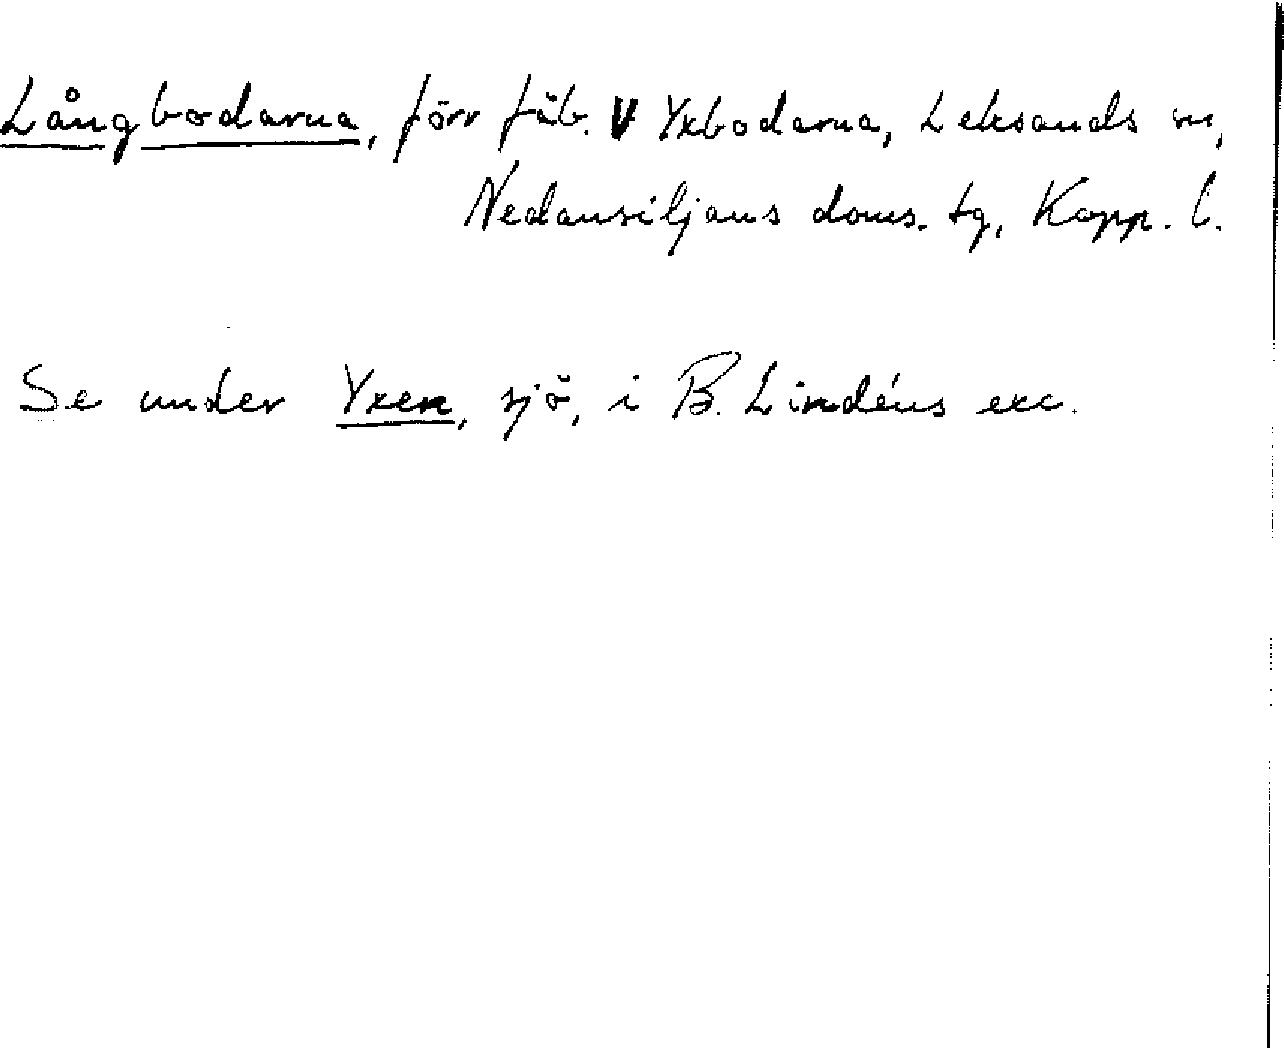 Långbodarna, förr fäb. V Yxbodarna, Leksands sn,
Nedansiljans doms. tg, Kopp. l.
Se under Yxen, sjö, i B. Lindéns exc.